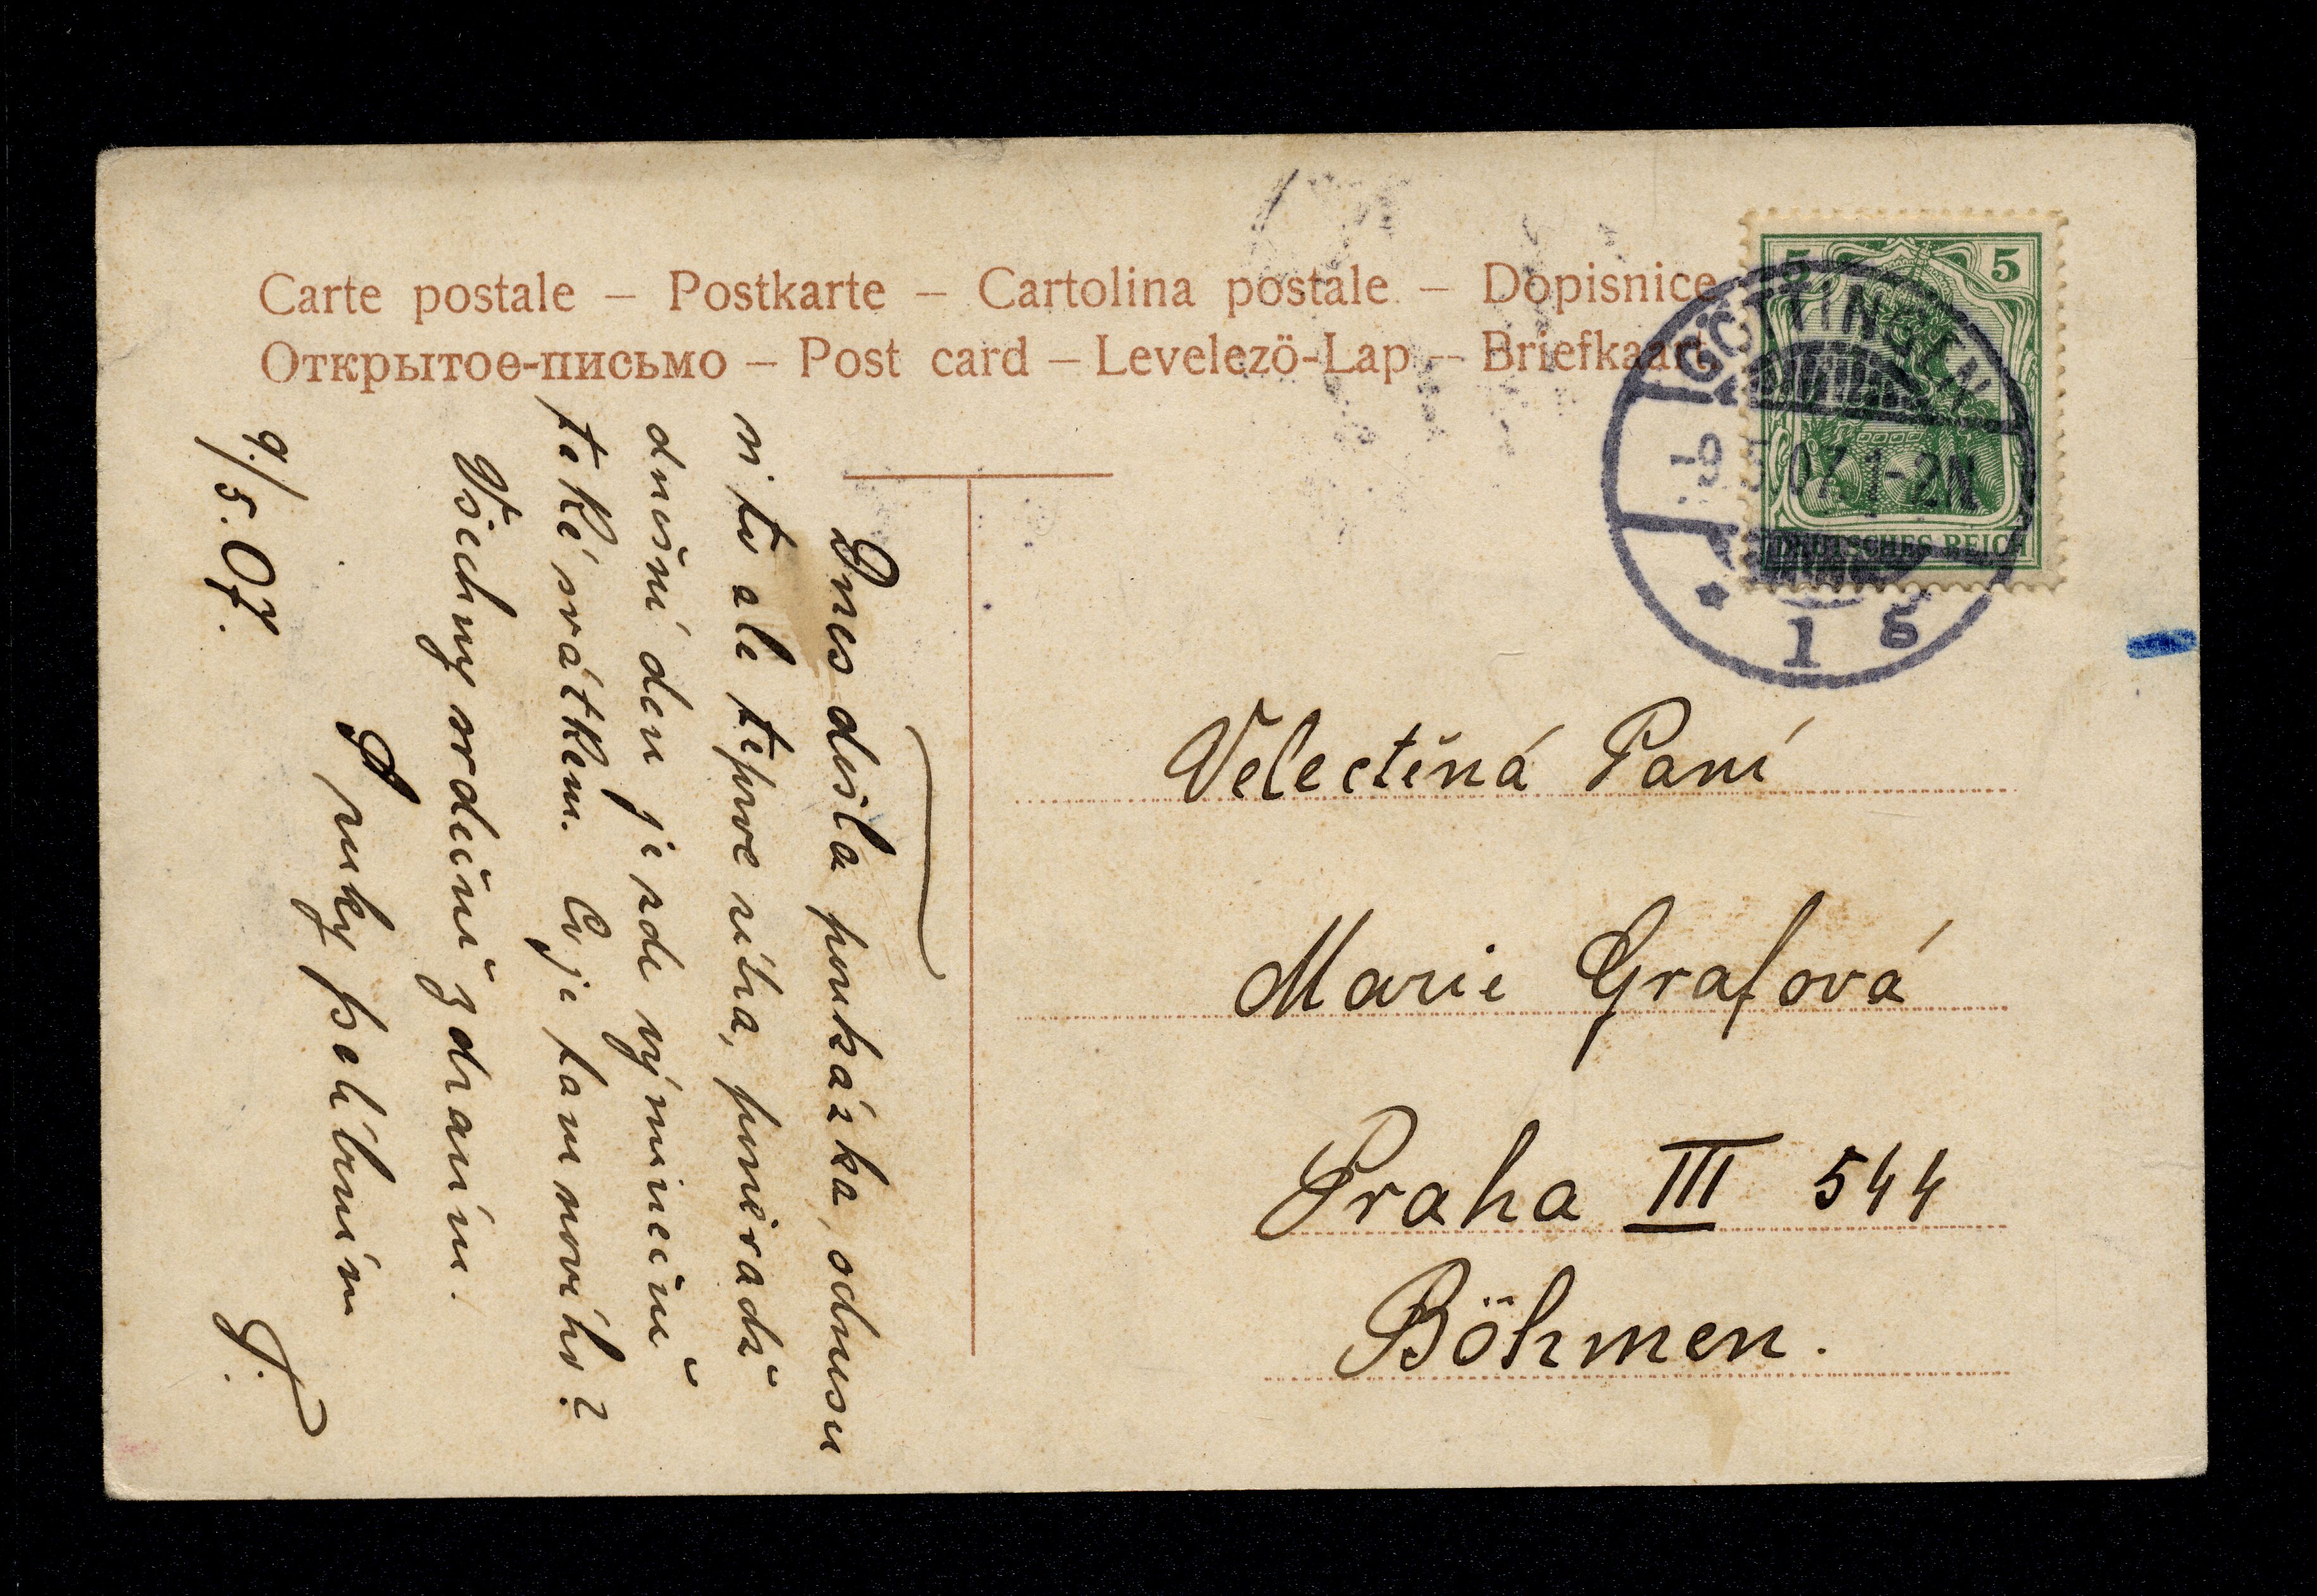 Carte postale – Postkarte – Cartolina postale – Dopisnice
Открытое-письмо – Post card – Levelezö-Lap – Briefkaart.
5 5
DEUTSCHES REICH
GÖTTINGEN
-9.5.07.1-2N
* 1 5
Velectěná Paní
Marie Grafová
Praha III 544
Böhmen.
Dnes došla poukázka, odnesu
si to ale teprve zítra, poněvadž
dnešní den je zde výminečně
také svátkem. Co je tam nového?
Všechny srdečně zdravím.
A ruky políbením
J.
9./5.07.